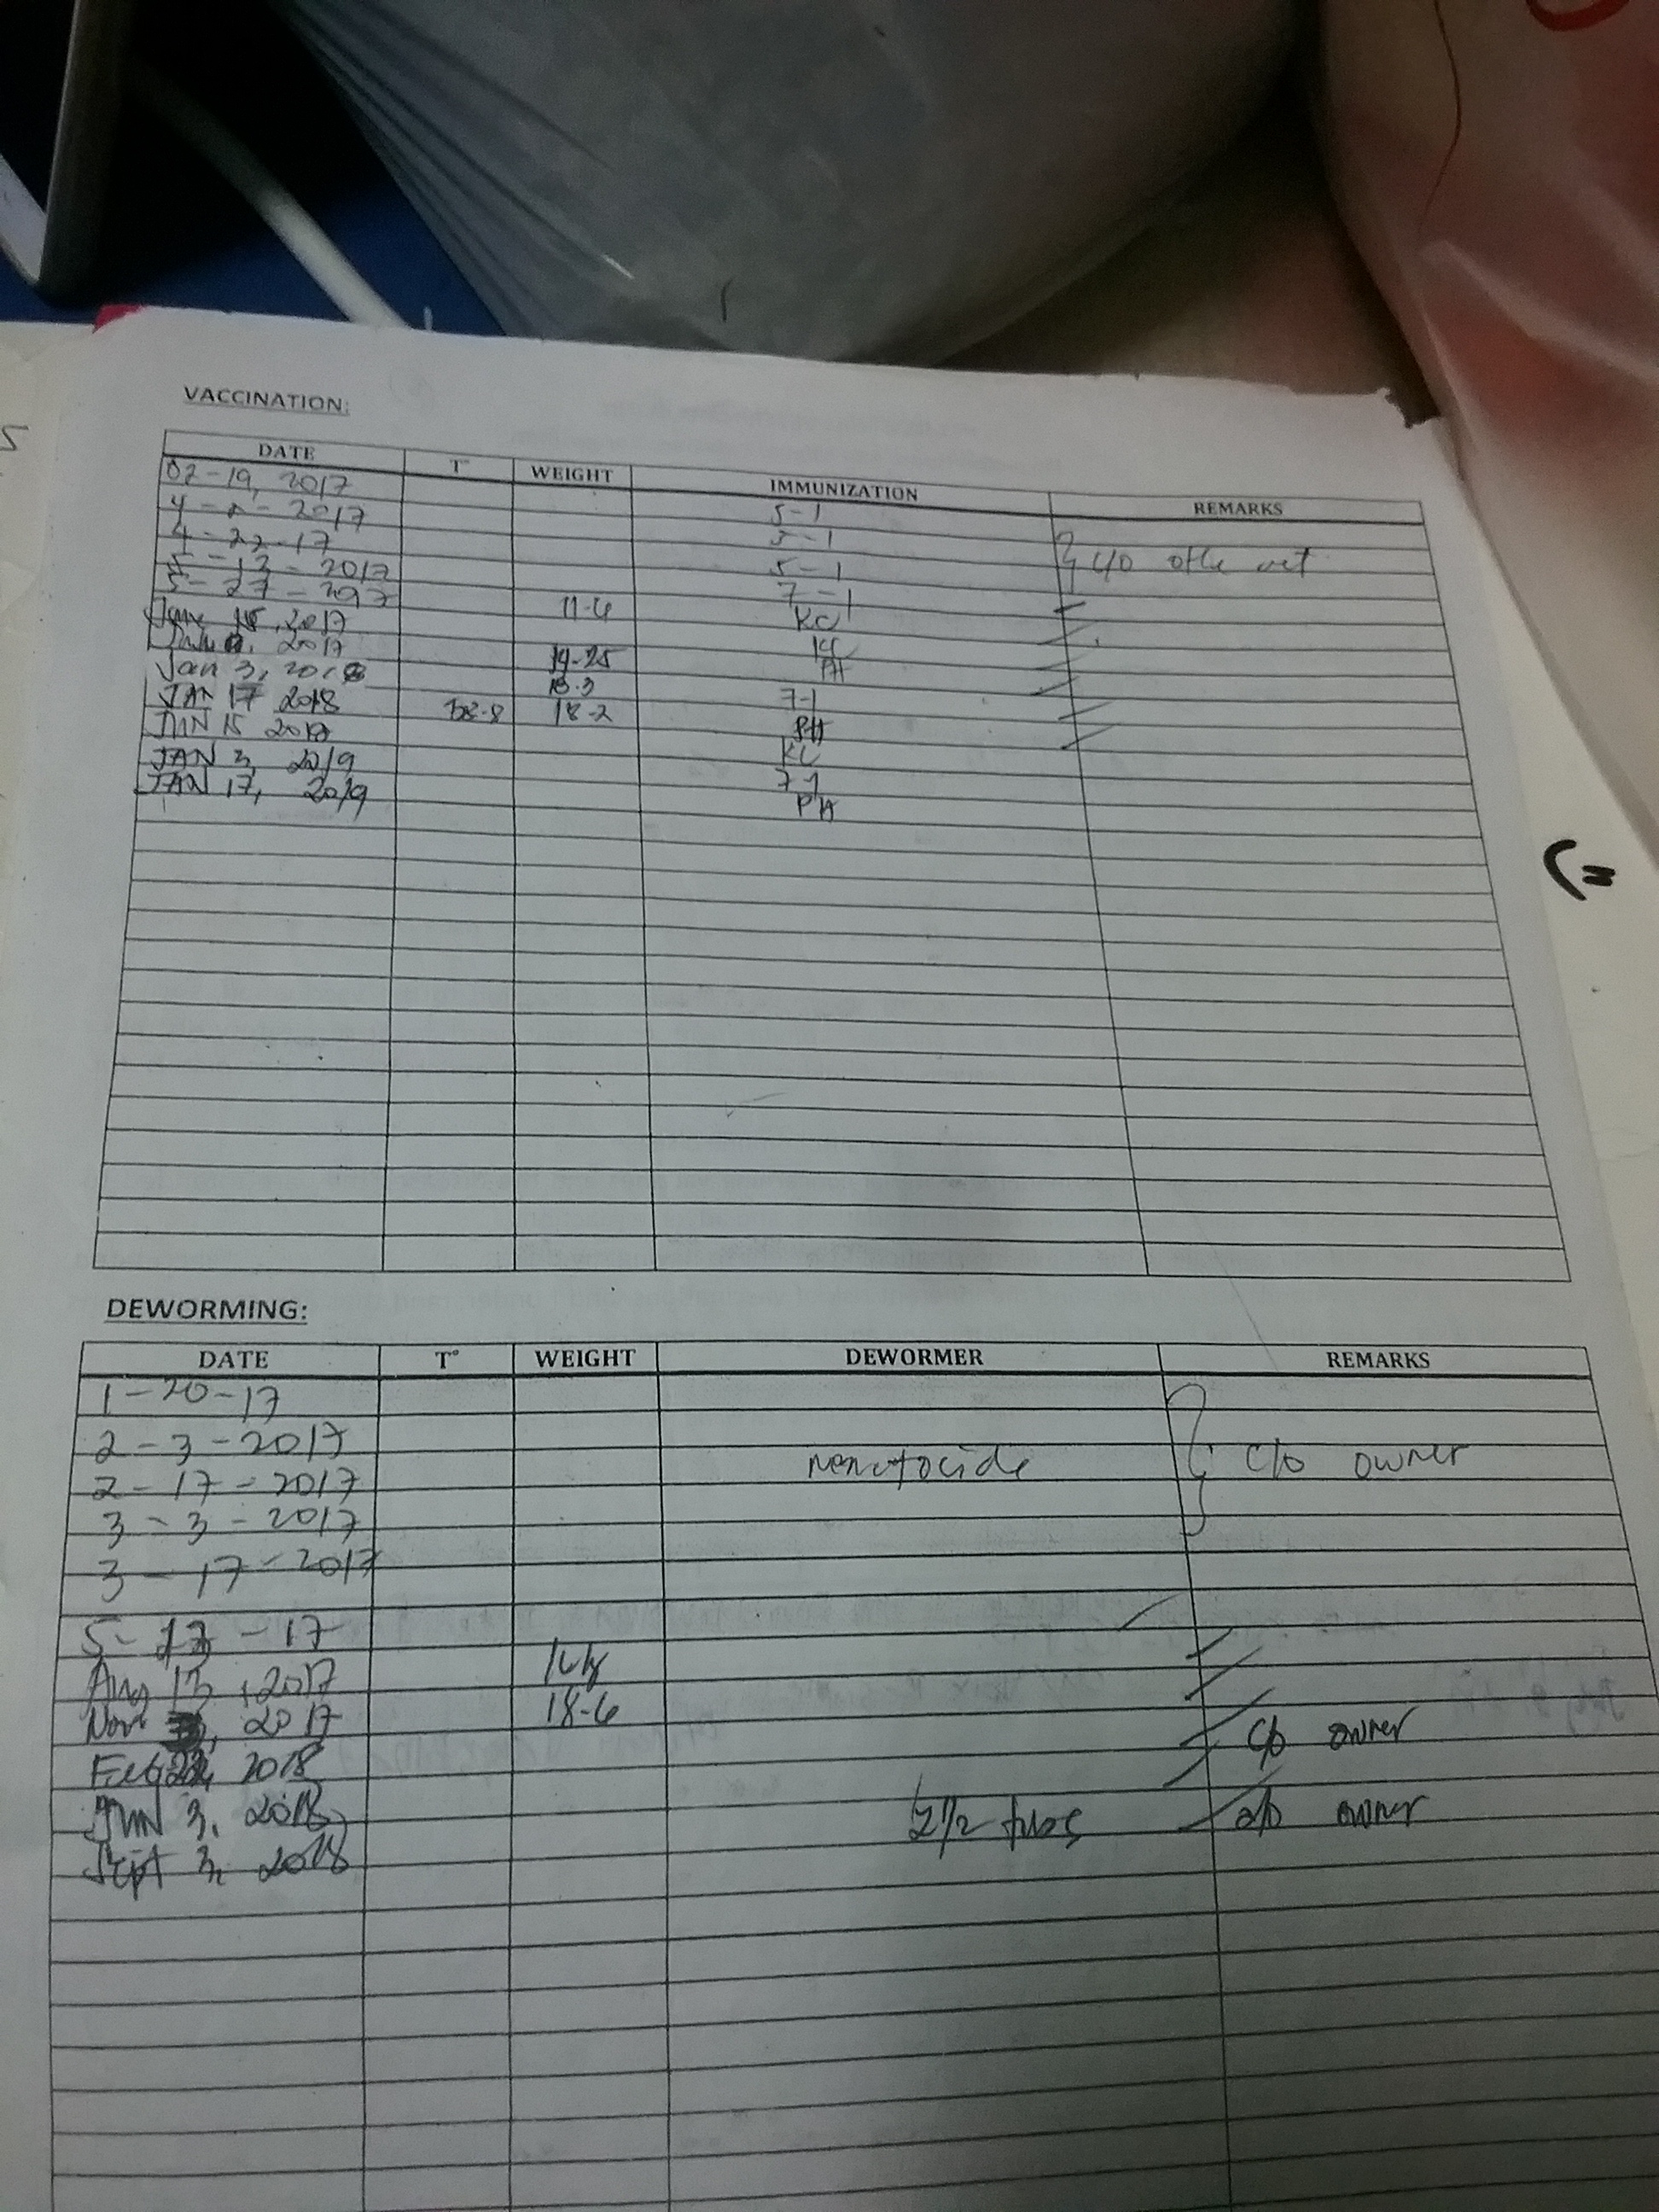 VACCINATION:
DATE T° WEIGHT IMMUNIZATION REMARKS
02-19, 2017 5-1
2017 5-1
4-22-17 5-1 c/o other vet
5-13-2017 7-1
5-27-2017 11-6 KC
June 2017 KC
2017 19-25
Jan 3, 2018 18.3 7-1
JAN 17 2018 38-8 18-2
JUN 15 2018 KC
JAN 3, 2019 7-1
JAN 17, 2019 PH
DEWORMING:
DATE T° WEIGHT DEWORMER REMARKS
1-20-17
2-3-2017
2-17-2017 nematocide c/o owner
3-3-2017
3-17-2017
5-13-17
Aug 13, 2017
Nov 2017 18-6
Feb 22, 2018 c/o owner
JUN 3, 2018
Sept 3, 2018 2 1/2 tabs c/o owner